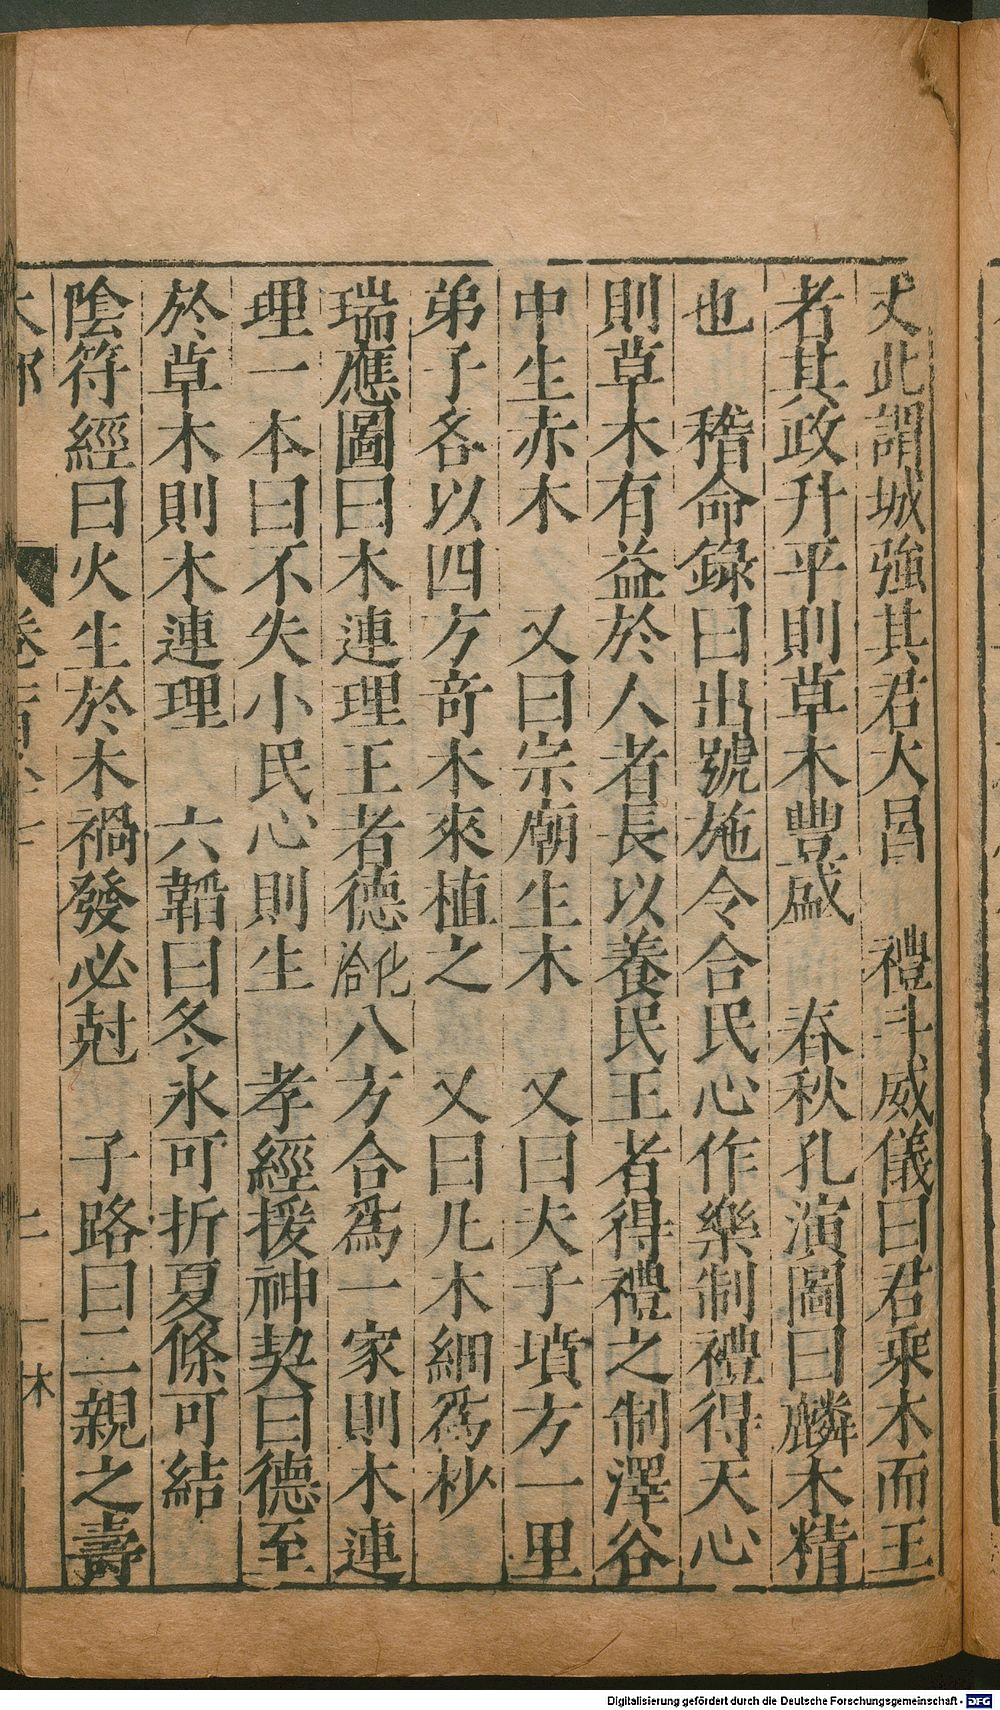 丈此謂城強其君大昌　禮斗威儀曰君乘木而王
者其政升平則草木豐盛　春秋孔演圖曰麟木精
也　稽命錄曰出號施令合民心作樂制禮得天心
則草木有益於人者長以養民王者得禮之制澤谷
中生赤木　又曰宗廟生木　又曰夫子墳方一里
弟子各以四方奇木來植之　又曰凡木細爲杪
瑞應圖曰木連理王者德化洽八方合爲一家則木連
理一本曰不失小民心則生　孝經援神契曰德至
於草木則木連理　六韜曰冬氷可折夏條可結
隂符經曰火生於木禍發必尅　子路曰二親之壽
木部　卷
Digitalisierung gefördert durch die Deutsche Forschungsgemeinschaft - DFG